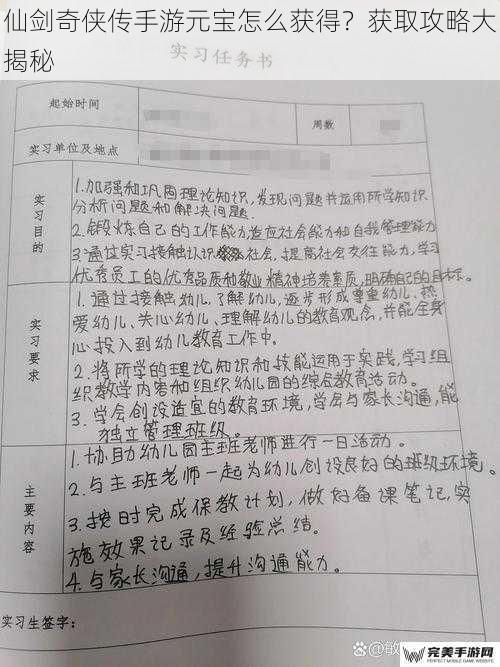 仙剑奇侠传手游元宝怎么获得？获取攻略大
揭秘
实习任务书
起始时间
周数
实习单位及地点
实习目的
1.加强和巩固理论知识,发现问题并运用所学知识
分析问题和解决问题.
2.锻炼自己的工作能力,适应社会能力和自我管理能力
3.通过实习接触认识社会,提高社会交往能力,学习
优秀员工的优秀品质和敬业精神培养素质,明确自己的目标.
实习要求
1.通过接触幼儿,了解幼儿,逐步形成尊重幼儿、热
爱幼儿、关心幼儿、理解幼儿的教育观念,并能全身
心投入到幼儿教育工作中。
2.将所学的理论知识和技能运用于实践,学习组
织教学内容和组织幼儿园的综合教育活动。
3.学会创设适宜的教育环境,学会与家长沟通,能
独立管理班级。
主要内容
1.协助幼儿园主班老师进行一日活动。
2.与主班老师一起为幼儿创设良好的班级环境。
3.按时完成保教计划,做好备课笔记,实
施效果记录及经验总结。
4.与家长沟通,提升沟通能力。
实习生签字：
完美手游网